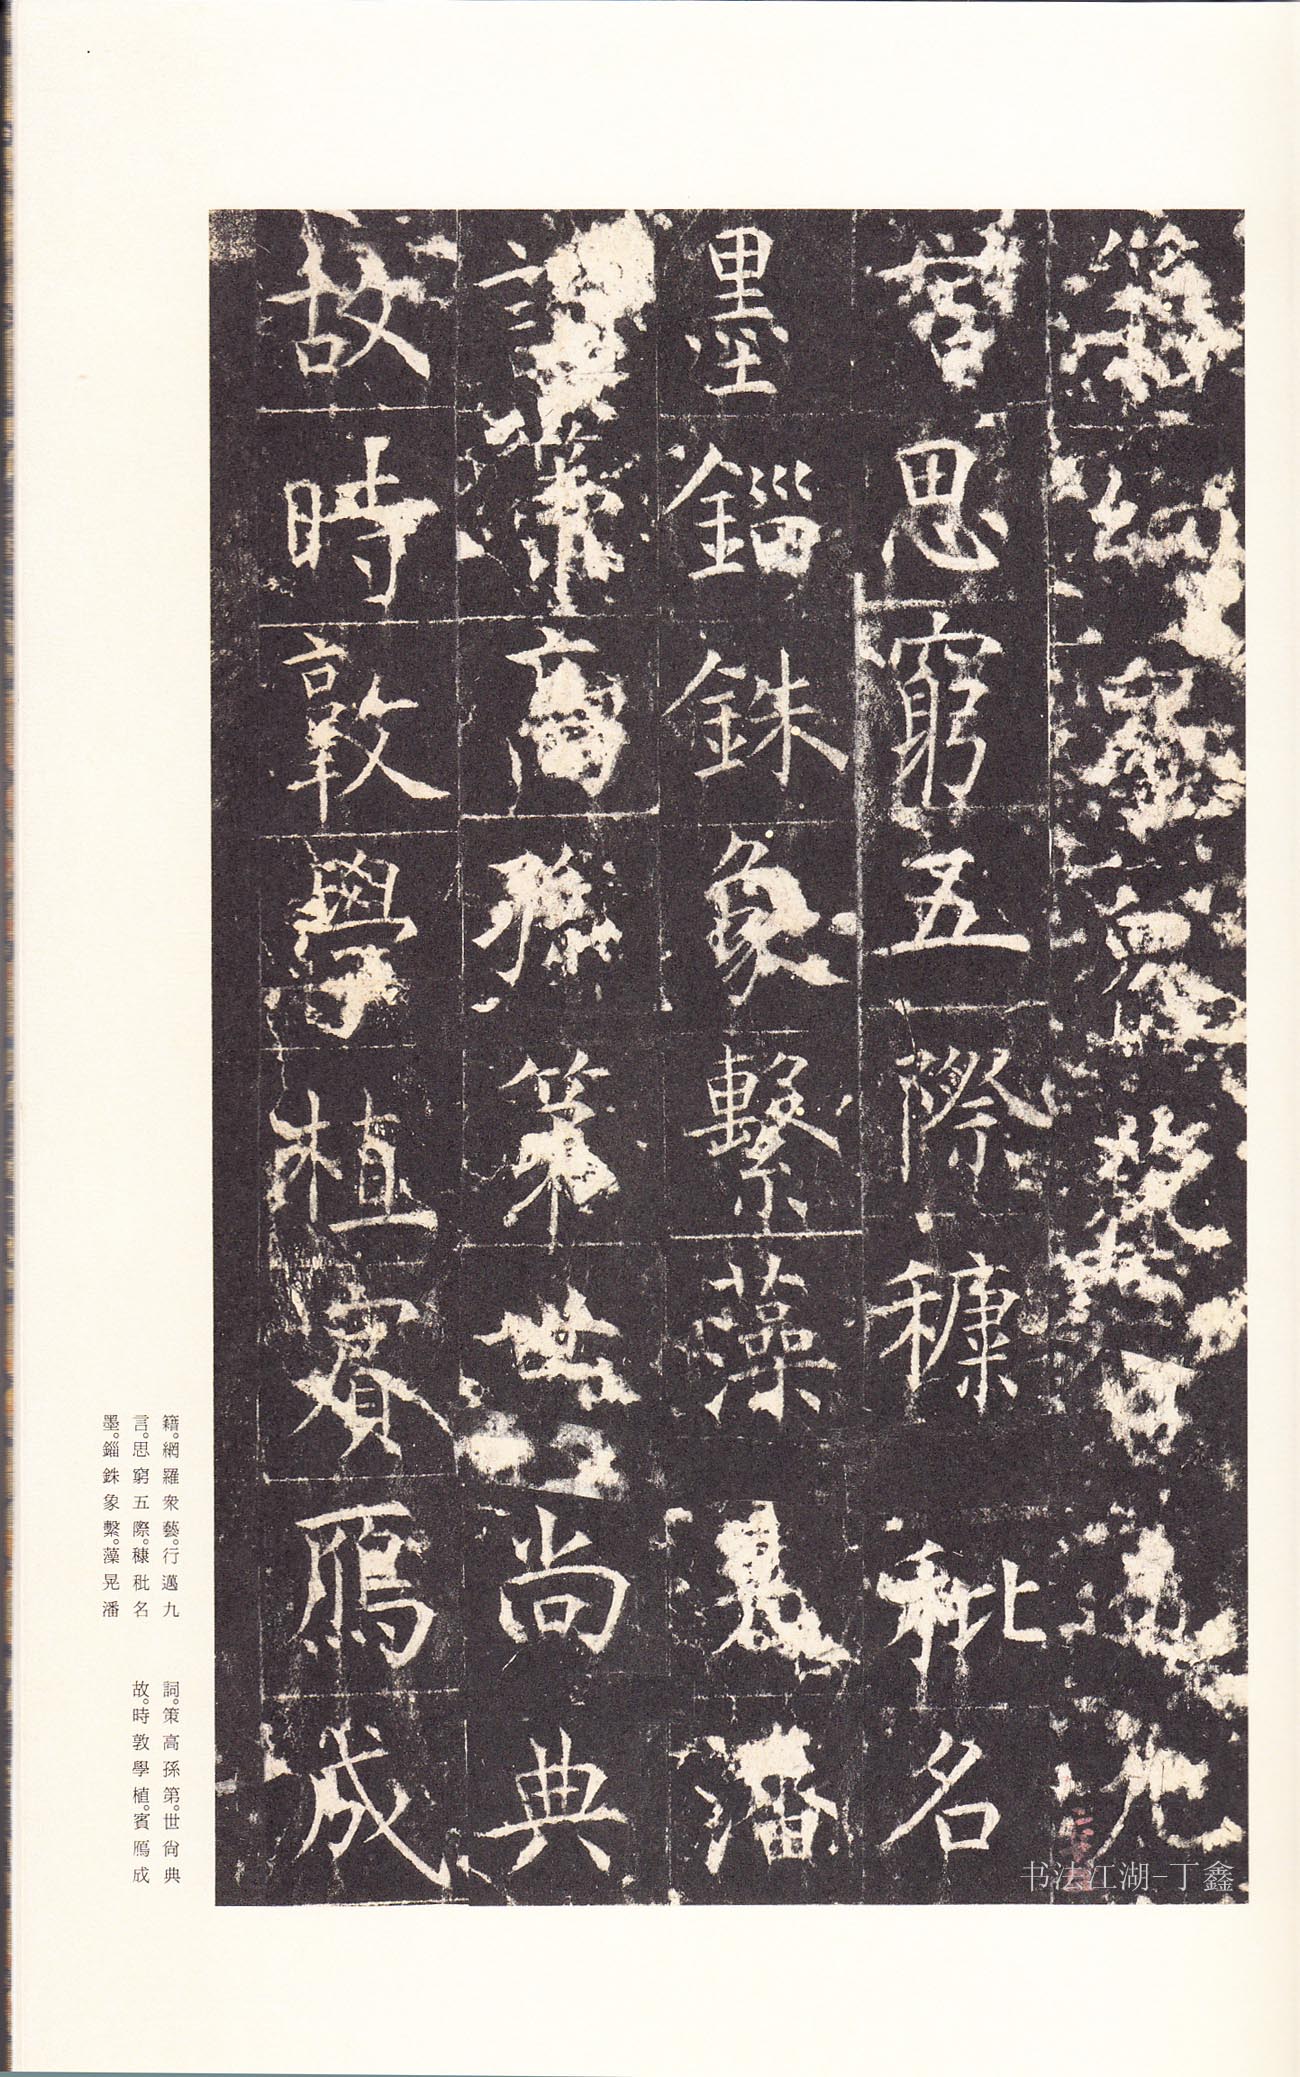 籍網羅衆藝行邁九
言思窮五際穅秕名
墨錙銖象繫藻晃潘
詞策高孫第世尚典
故時敦學植賓鴈成
籍。網羅衆藝。行邁九
言。思窮五際。穅秕名
墨。錙銖象繫。藻晃潘
詞。策高孫第。世尚典
故。時敦學植。賓鴈成
书法江湖-丁鑫